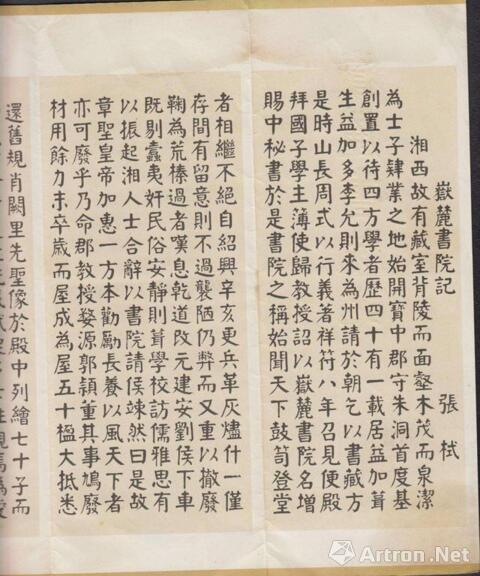 嶽麓書院記　張栻
湘西故有藏室背陵而面壑木茂而泉潔
為士子肄業之地始開寶中郡守朱洞首度基
創置以待四方學者歷四十有一載居益加葺
生益加多李允則來為州請於朝乞以書藏方
是時山長周式以行義著祥符八年召見便殿
拜國子學主簿使歸教授詔以嶽麓書院名增
賜中秘書於是書院之稱始聞天下鼓笥登堂
者相繼不絕自紹興辛亥更兵革灰燼什一僅
存間有留意則不過襲陋仍弊而又重以撤廢
鞠為荒榛過者嘆息乾道改元建安劉侯下車
既剔蠹夷奸民俗安靜則葺學校訪儒雅思有
以振起湘人士合辭以書院請侯竦然曰是故
章聖皇帝加惠一方本勸勵長養以風天下者
亦可廢乎乃命郡教授婺源郭頴董其事鳩廢
材用餘力未卒歲而屋成為屋五十楹大抵悉
還舊規肖闕里先聖像於殿中列繪七十子而
Artron.Net